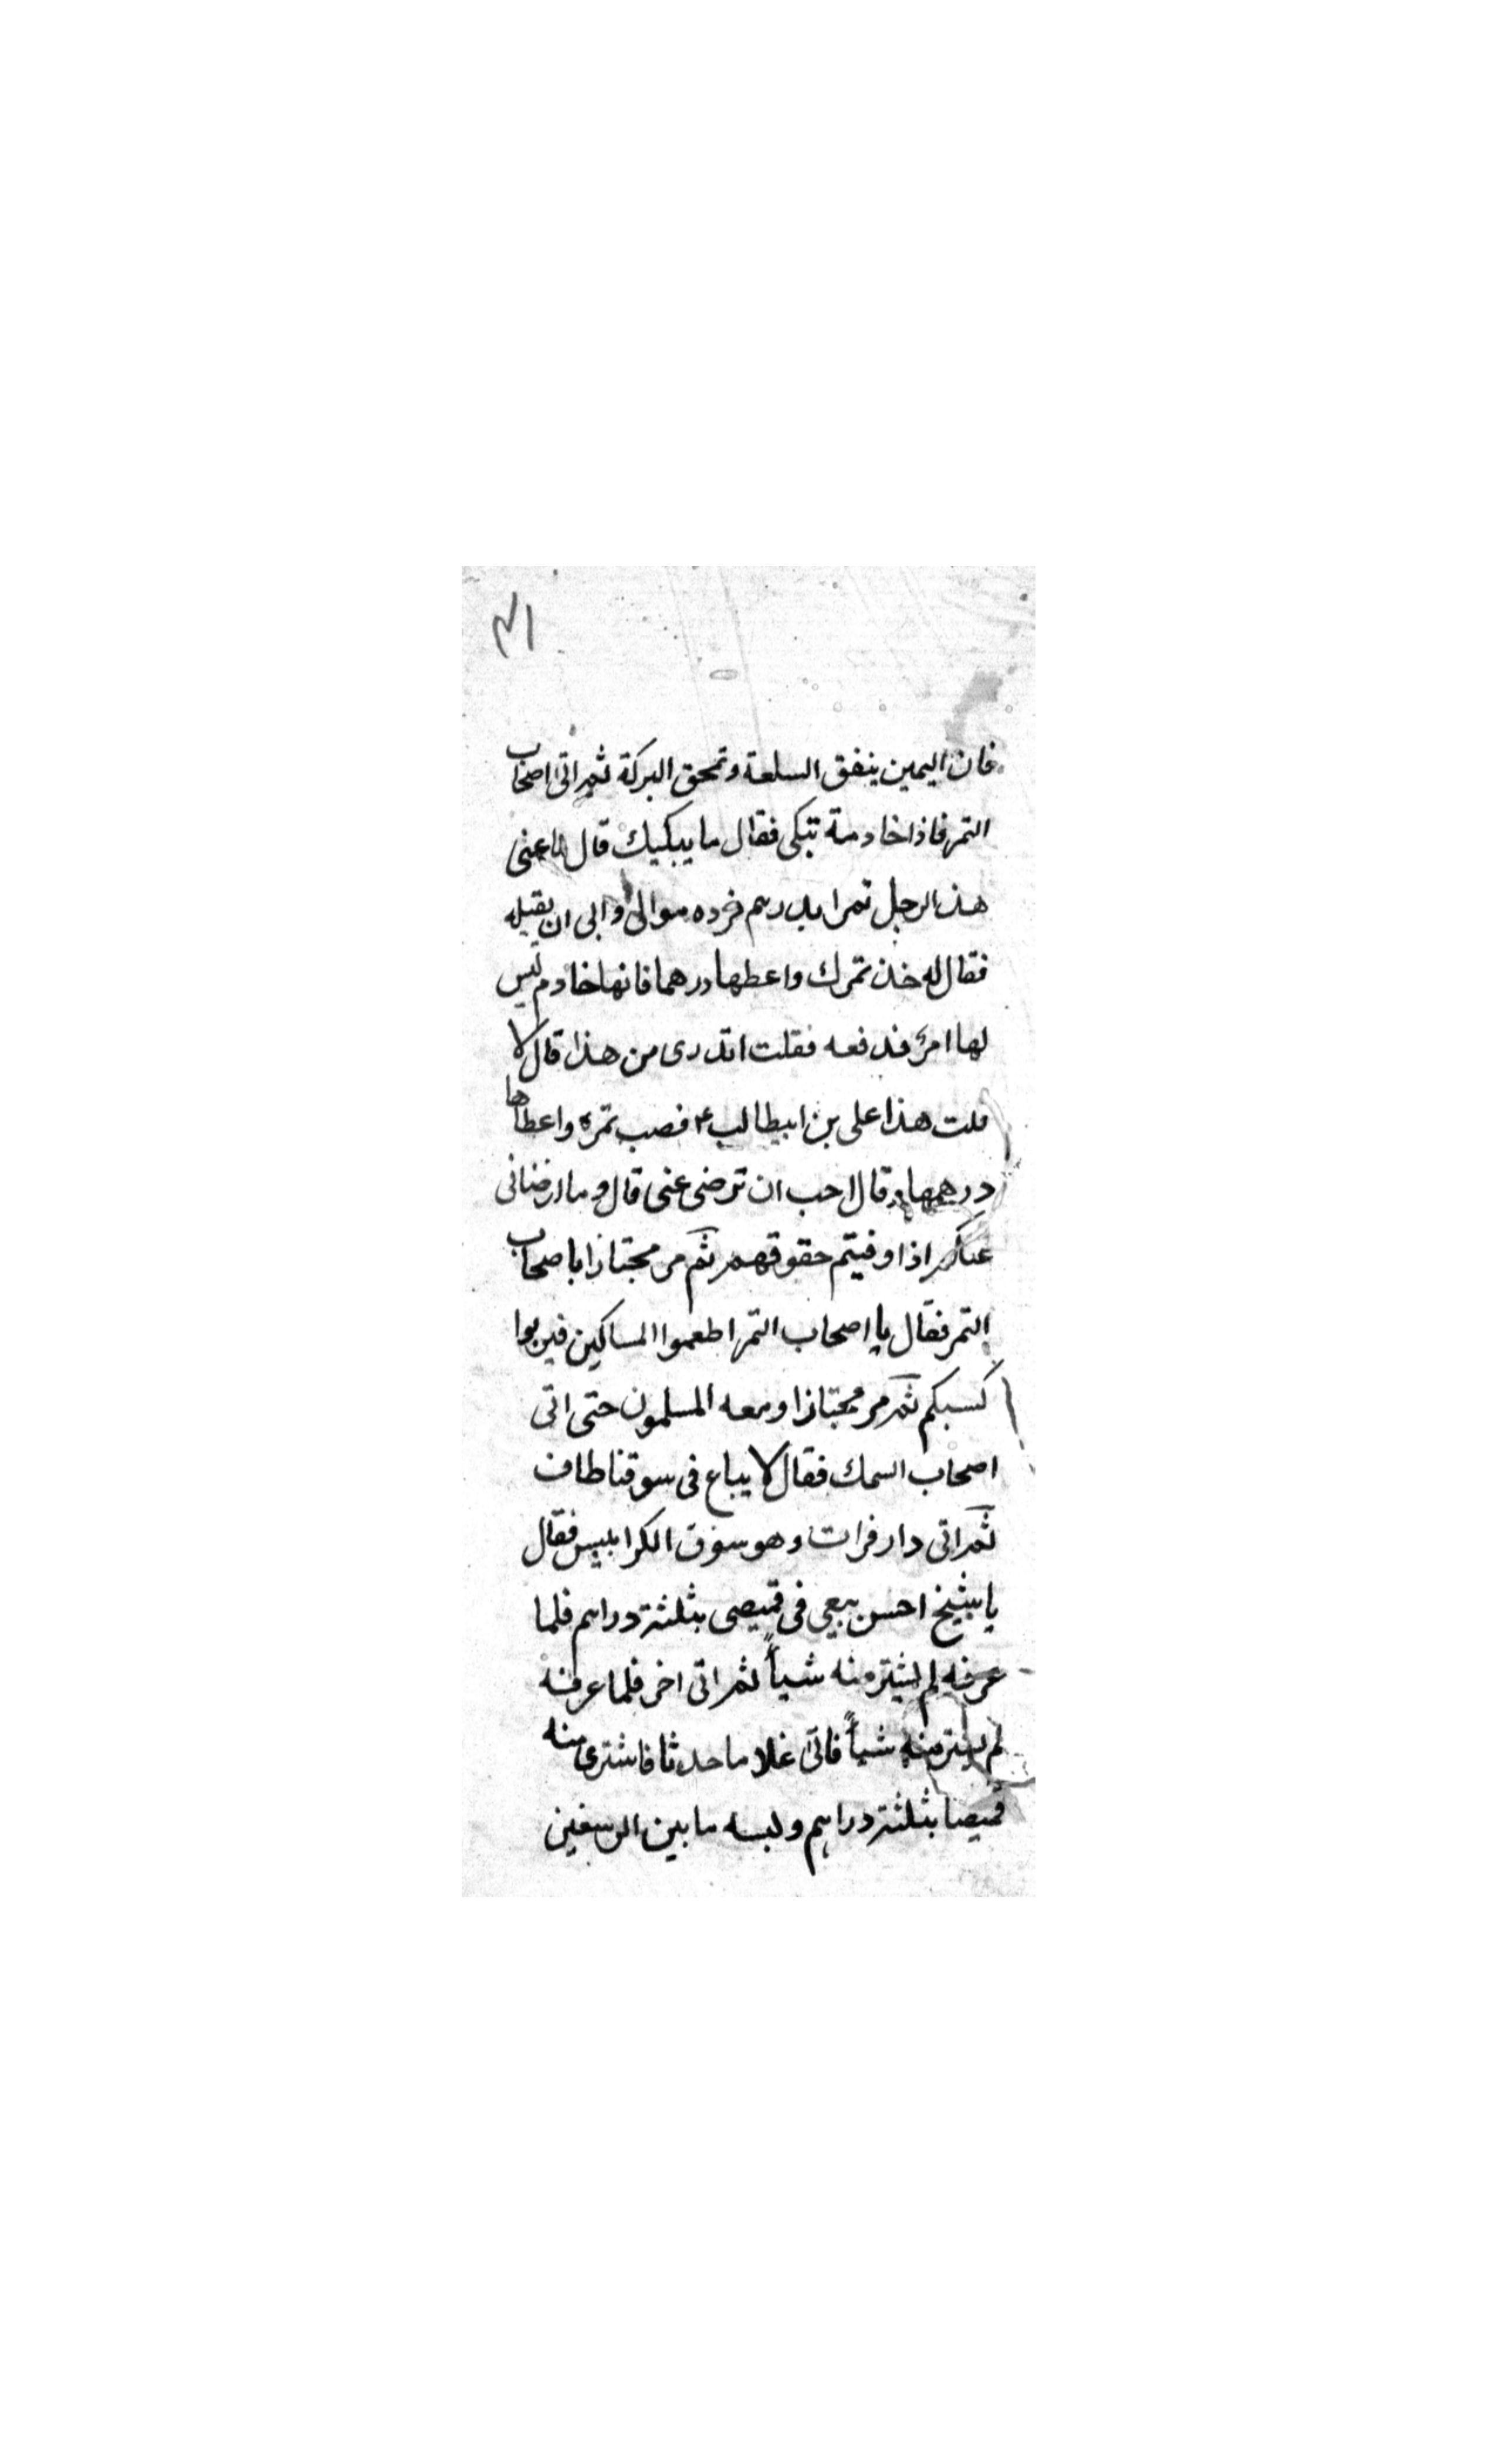 ٣١
فان اليمين ينفق السلعة وتمحق البركة ثم اتى اصحاب
التمر فاذا خادمة تبكى فقال ما يبكيك قال باعنى
هذا الرجل تمرا بدرهم فرده موالى وابى ان يقبله
فقال له خذ تمرك واعطها درهما فانها خادم ليس
لها امر فدفعه فقلت اتدرى من هذا قال لا
قلت هذا على بن ابيطالب ع فصب تمره واعطاها
درهمها وقال احب ان ترضى عنى قال وما ارضانى
عنكم اذا وفيتم حقوقهم ثم مر مجتازا باصحاب
التمر فقال يا اصحاب التمر اطعموا المساكين فيربوا
كسبكم ثم مر مجتازا ومعه المسلمون حتى اتى
اصحاب السمك فقال لا يباع فى سوقنا طاف
ثم اتى دار فرات وهو سوق الكرابيس فقال
يا شيخ احسن بيعى فى قميصى بثلثة دراهم فلما
عرفه لم يشتر منه شيأً ثم اتى اخر فلما عرفه
لم يشتر منه شيأً فاتى غلاما حدثا فاشترى منه
قميصا بثلثة دراهم ولبسه ما بين الرسغين